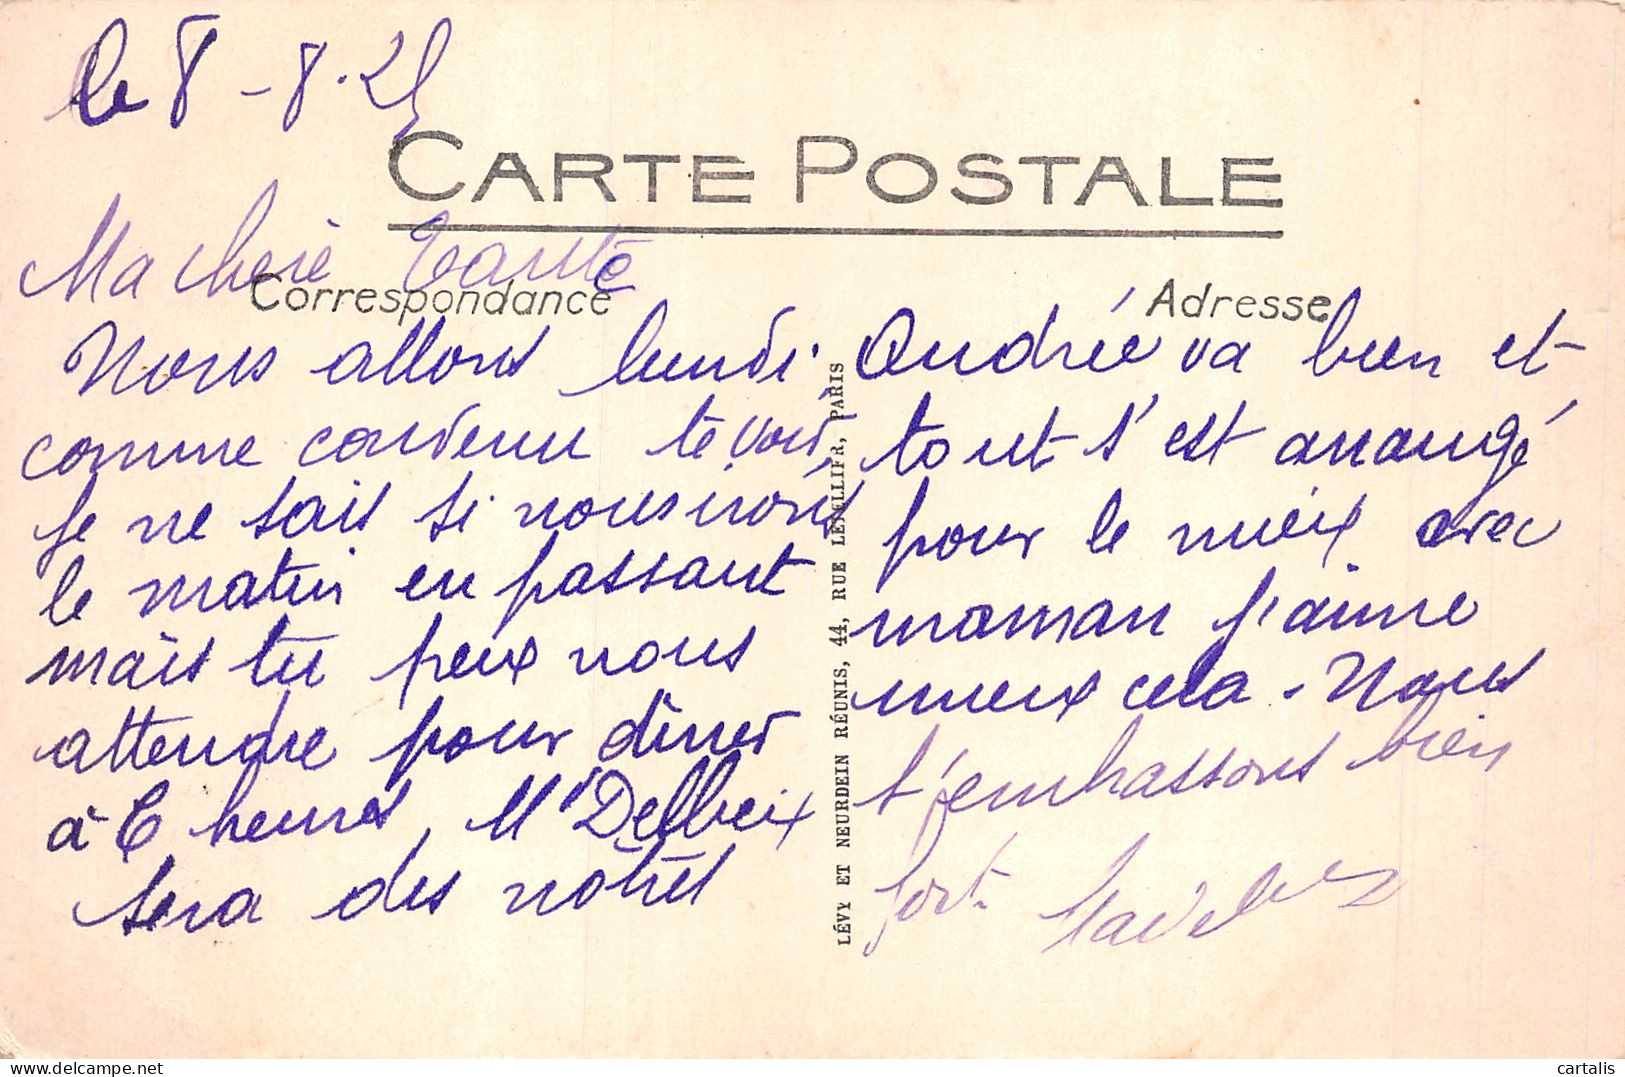 le 8 - 8. 25
CARTE POSTALE
Ma cherie tante
Correspondance
Adresse
Nous allons lundi
comme convenu te voir
je ne sais si nous irons
le matin en passant
mais tu peux nous
attendre pour dîner
à 6 heures, Mr Delbeix
sera des nôtres
LÉVY ET NEURDEIN RÉUNIS, 44, RUE LETELLIER, PARIS
Andrée va bien et
tout s'est arrangé
pour le mieux avec
maman j'aime
mieux cela. Nous
t'embrassons bien
fort.
cartalis